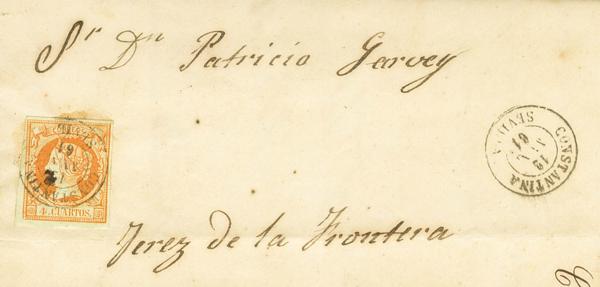 Sr Dn Patricio Garvey
4 CUARTOS.
CONSTANTINA
SEVILLA
61
Jerez de la Frontera